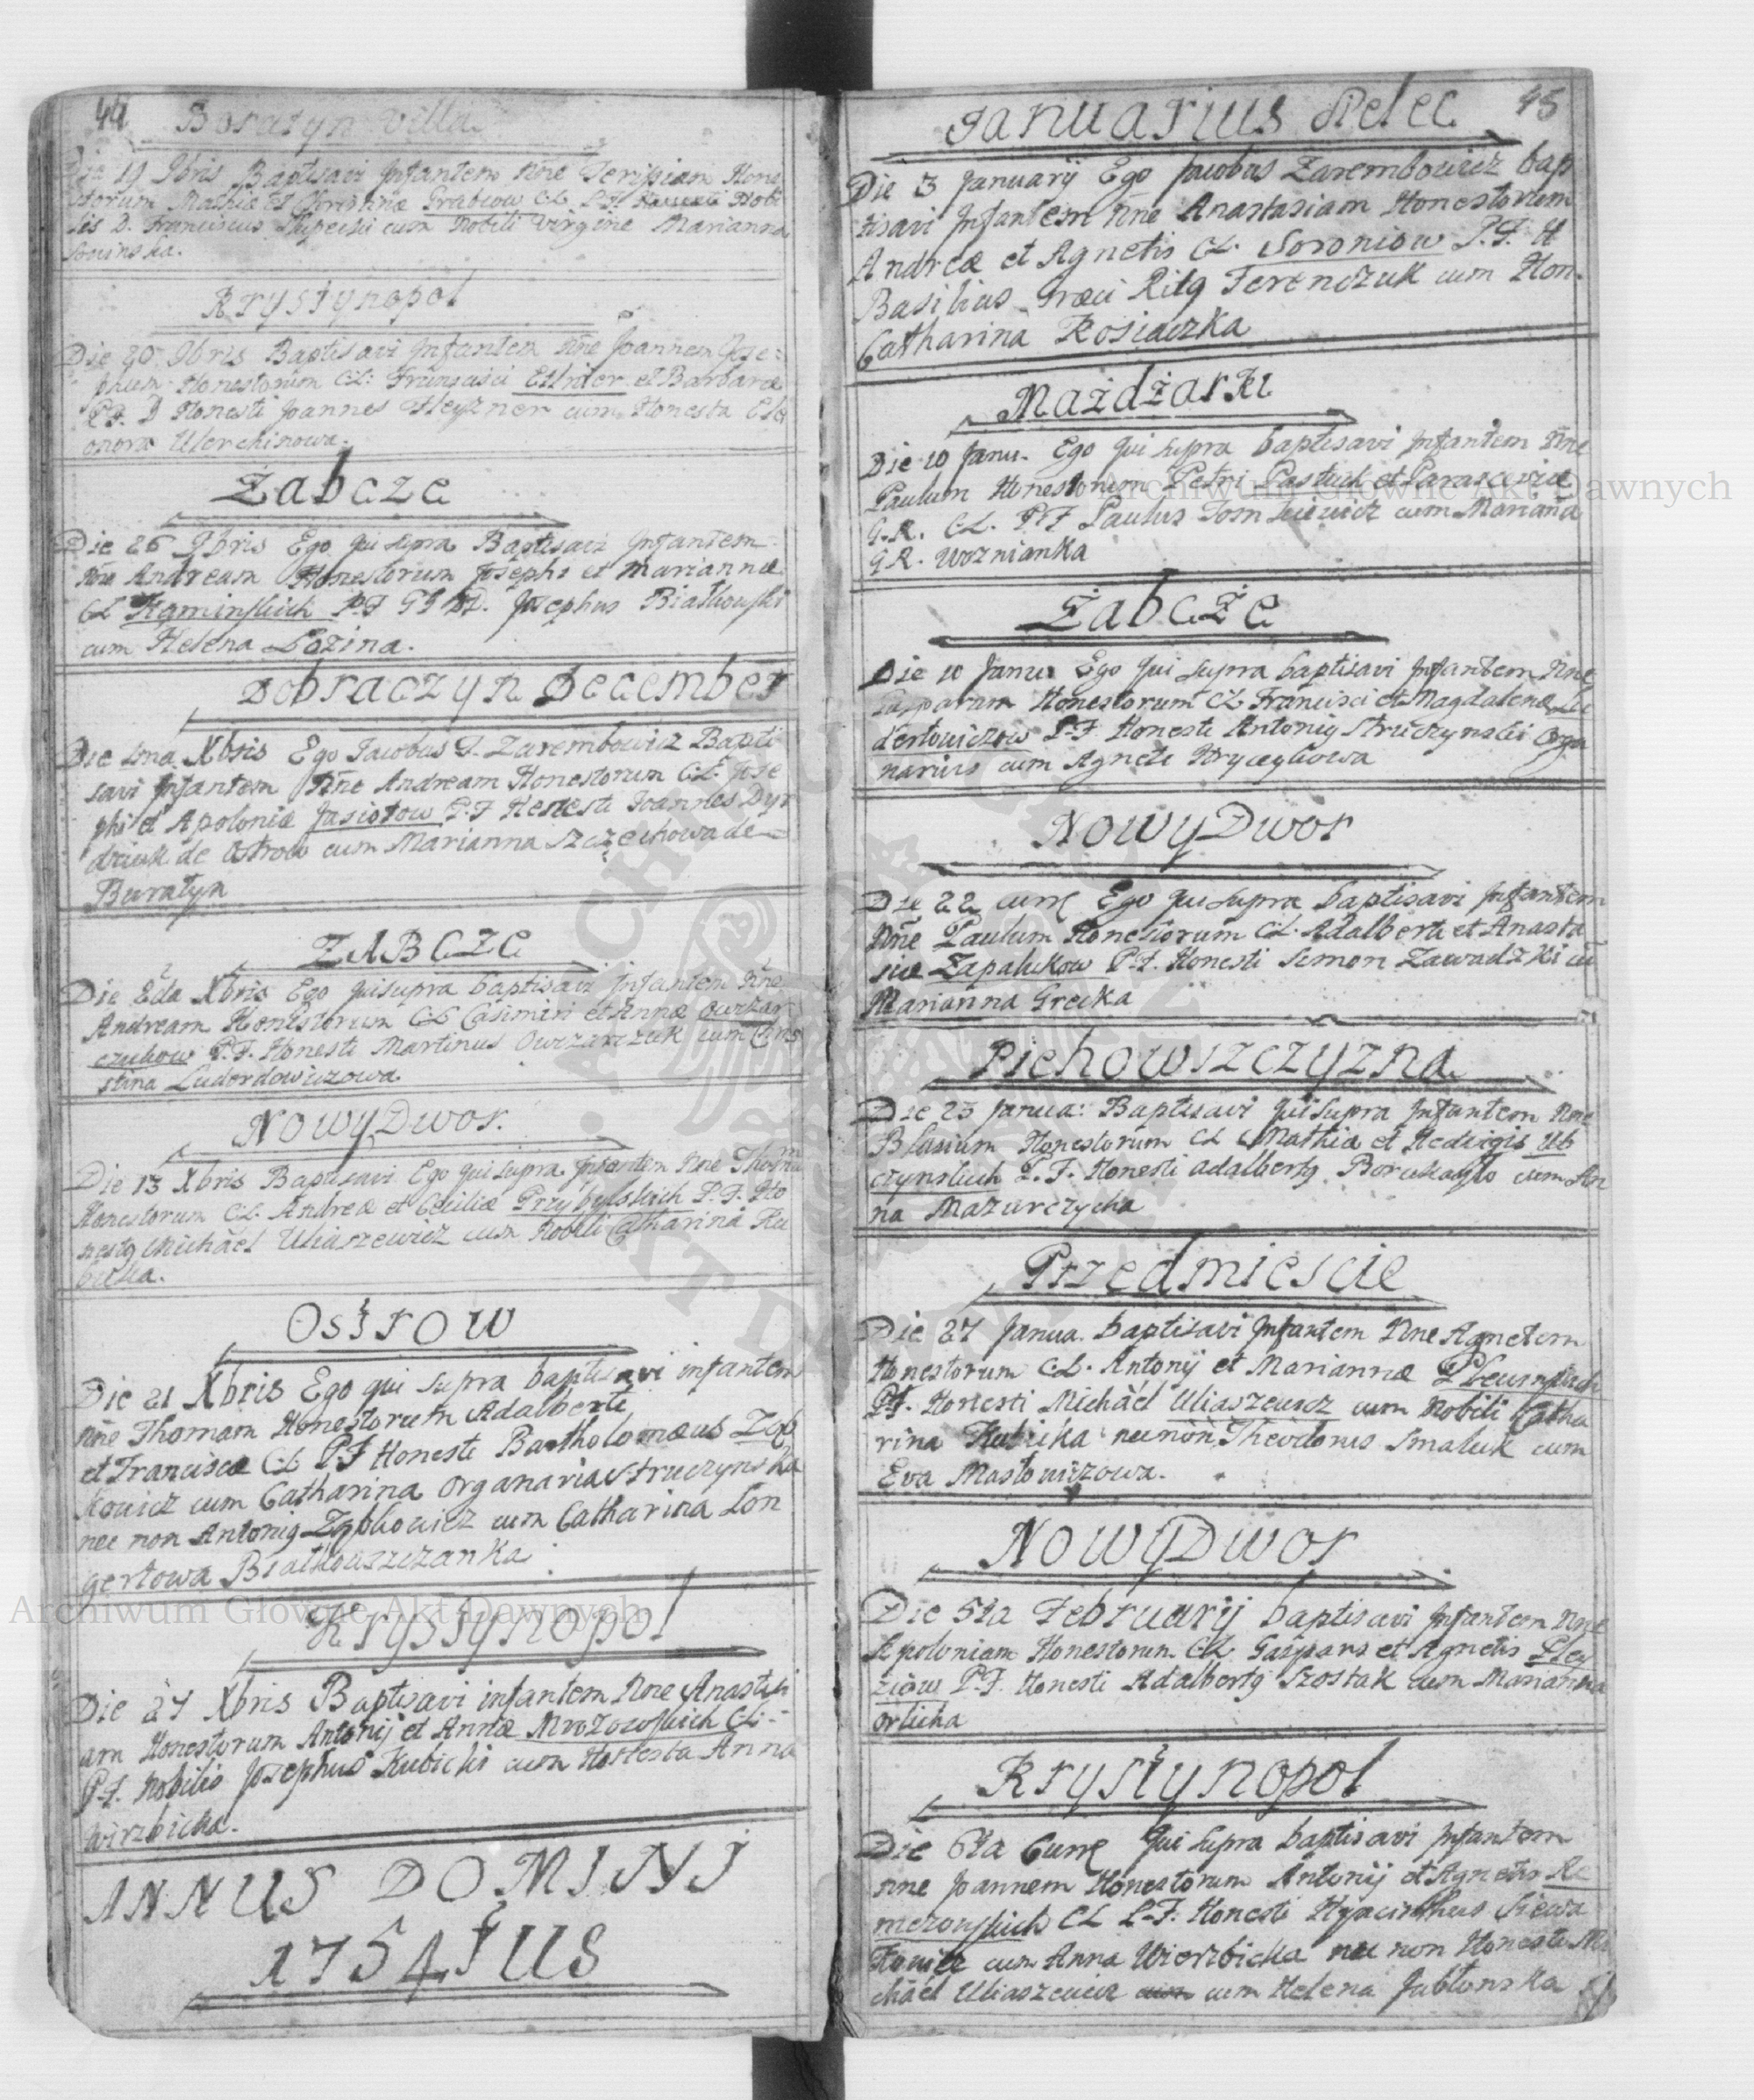 44
Boratyn Villa
Die 19 9bris Baptisavi Infantem Nne Hones
torum Mathiæ et Christinæ Grabcow CL PF Nobi
lis D. Franciscus cum Nobili Virgine Marianna
Krystynopol
Die 20 9bris Baptisavi Infantem Nne Joannem Jose-
phum Honestorum CL: Francisci et Barbaræ
PF. Honesti Joannes Heyzner cum Honesta Ele
onora
Zabcze
Die 26 9bris Ego qui supra Baptisavi Infantem
Nne Andream Honestorum Josephi et Mariannæ
CL Kaminskich P.F Josephus Białkowski
cum Helena Łozina.
Dobraczyn December
Die 1ma Xbris Ego Jacobus Zarembowicz Bapti
savi Infantem Nne Andream Honestorum CL: Jose
phi et Apoloniæ Jasiołow P.F Honesti Joannes Dyr
dziuk de Ostrow cum Marianna de
Buratyn
ZABCZE
Die 2da Xbris Ego qui supra baptisavi Infantem Nne
Andream Honestorum CL Casimiri et Annæ Owczar
czukow P.F. Honesti Martinus Owczarczuk cum Chri
stina Luderdowiczowa.
Nowy Dwor.
Die 13 Xbris Baptisavi Ego qui supra Infantem Nne Thomam
Honestorum CL. Andreæ et Ceciliæ Przybylskich P.F. Ho
nestq Michael Uliaszewicz cum Nobili Catharina Ku
bicka.
Ostrow
Die 21 Xbris Ego qui supra baptisavi infantem
Nne Thomam Honestorum Adalberti
et Franciscæ CL P.F Honesti Bartholomæus Zap
kowicz cum Catharina Organaria Struczynska
nec non Antoniq cum Catharina Lon
gertowa Białkouszczanka
Krystynopol
Die 27 Xbris Baptisavi infantem Nne Anastasi
am Honestorum Antonij et Annæ Mrozowskich CL:
P.F. Nobilis Josephus Kubicki cum Honesta Anna
Wirzbicka.
ANNUS DOMINI
1754tus
45
Januarius Pielec
Die 3 Januarij Ego Jacobus Zarembowicz bap
tisavi Infantem Nne Anastasiam Honestorum
Andreæ et Agnetis CL. Soroniow P.F. H
Basilius Græci Ritq Terenczuk cum Hon.
Catharina Kosiaczka
Mazdzarki
Die 10 Janu. Ego qui supra baptisavi Infantem Nne
Paulum Honestorum Petri Pastuch et Parasceviæ
G.R. CL. P.F Paulus cum Mariana
G.R. Wozníanka
Zabcze
Die 10 Janu. Ego qui supra baptisavi Infantem Nne
Casparum Honestorum CL Francisci et Magdalenæ Lu
dertowiczow P.F. Honesti Antoniq Struczynski Orga
narius cum Agnete Hrycychowa
Nowy Dwor
Die 22 curre Ego qui supra baptisavi Infantem
Nne Paulum Honestorum CL. Adalberti et Anasta
siæ Zapałukow P.F. Honesti Simon Zawadzki cu
Marianna Grecka
Piehowszczyzna
Die 23 Janua: Baptisavi qui supra Infantem Nne
Blasium Honestorum CL Mathiæ et Hedvigis Ub
czynskich P.F. Honesti Adalbertq cum An
na Mazurczycha
Przedmiescie
Die 27 Janua. baptisavi Infantem Nne Agnetem
Honestorum CL. Antonij et Mariannæ
PF. Honesti Michael Uliaszewicz cum Nobili Catha
rina Kubicka necnon Theodorus Smaluk cum
Eva Masłowiczowa.
Nowy Dwor
Die 5ta Februarij baptisavi Infantem Nne
Apoloniam Honestorum CL. Gaspari et Agnetis
ziow P.F. Honesti Adalbertq Szostak cum Marianna
Orlicha
Krystynopol
Die 6ta Curre qui supra baptisavi Infantem
Nne Joannem Honestorum Antonij et Agnetis
CL P.F. Honesti Hyacinthus
cum Anna Wierzbicka nec non Honesti Mi
chael Uliaszewicz cum Helena Jabłonska
Archiwum Główne Akt Dawnych
Archiwum Główne Akt Dawnych